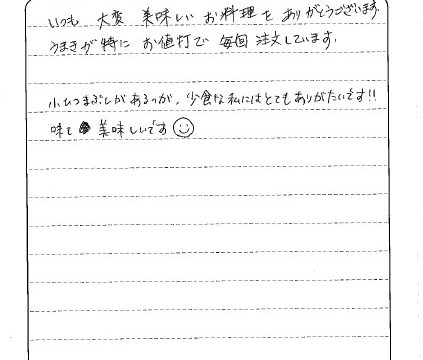 いつも 大変 美味しい お料理を ありがとうございます
うまきが特に お値打で 毎回 注文しています.
小ひつまぶしがあるのが、少食な私にはとてもありがたいです!!
味も 美味しいです